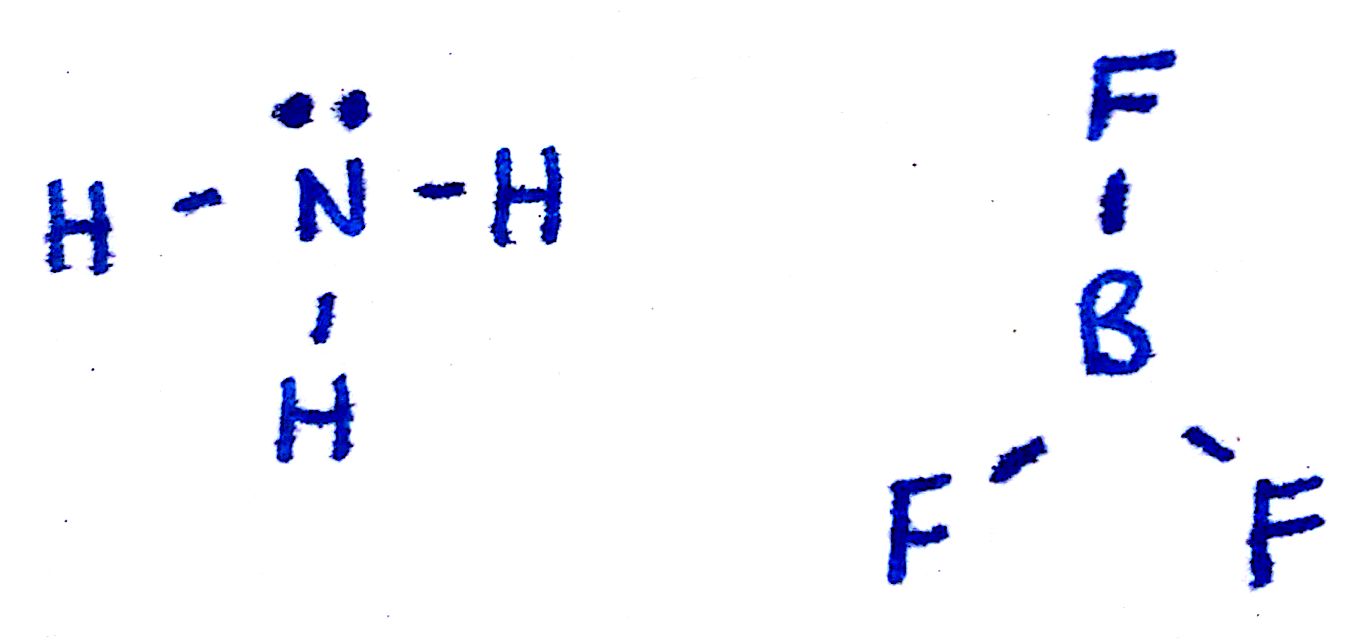 H - N - H
H
F
B
F F